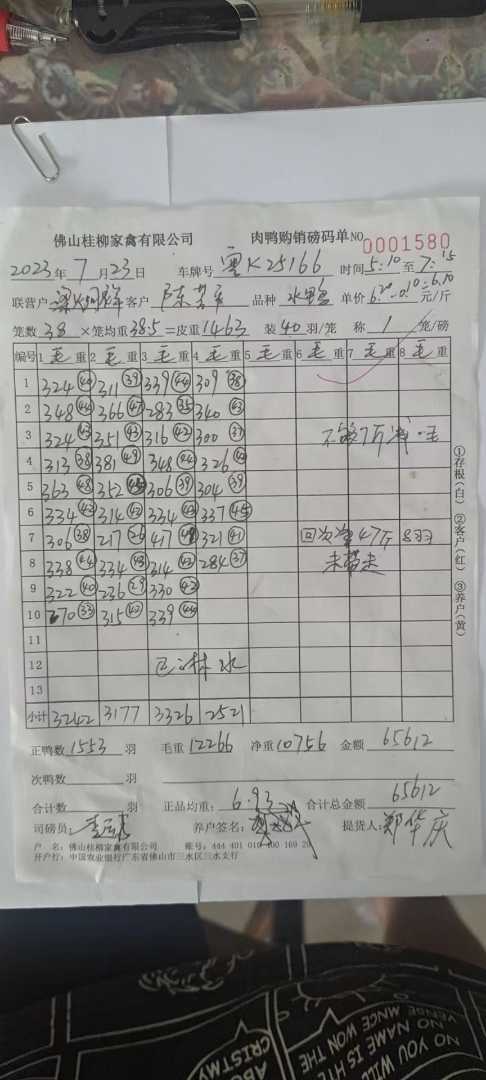 佛山桂柳家禽有限公司 肉鸭购销磅码单 NO 0001580
2023年 7月23日 车牌号 粤K25166 时间 5:10 至 7:15
联营户 客户 品种 水里 单价 6.20-0.10=6.10 元/斤
笼数 38 ×笼均重 38.5 =皮重 1463 装 40 羽/笼 称 1 笼/磅
编号 1 毛 重 2 毛 重 3 毛 重 4 毛 重 5 毛 重 6 毛 重 7 毛 重 8 毛 重
1 324 (40) 311 (39) 339 (44) 309 (38)
2 348 (44) 366 (47) 283 (35) 340 (43)
3 324 (43) 351 (43) 316 (42) 300 (37) 不够7斤减一毛
4 313 (38) 381 (49) 348 (44) 326 (42)
5 363 (48) 352 306 (39) 304 (39)
6 334 (43) 314 (42) 334 (43) 337 (45)
7 306 (38) 217 (26) 417 321 (41) 回次 47斤 8羽
8 338 (44) 334 (43) 314 (42) 284 (37) 未带走
9 322 (40) 236 (29) 330 (43)
10 270 (33) 315 (42) 339 (44)
11
12 已淋水
13
小计 3242 3177 3326 2521
①存根(白) ②客户(红) ③养户(黄)
正鸭数 1553 羽 毛重 12266 净重 10756 金额 65612
次鸭数 羽
合计数 羽 正品均重: 6.93 合计总金额 65612
司磅员: 养户签名: 提货人: 郑华庆
户 名: 佛山桂柳家禽有限公司 账号: 444 401 010 400 169 2
开户行: 中国农业银行广东省佛山市三水区三水支行
NO YOU
NO NAME IS
MANCE WON THE
VENGE
WILD IS
CRISTMY